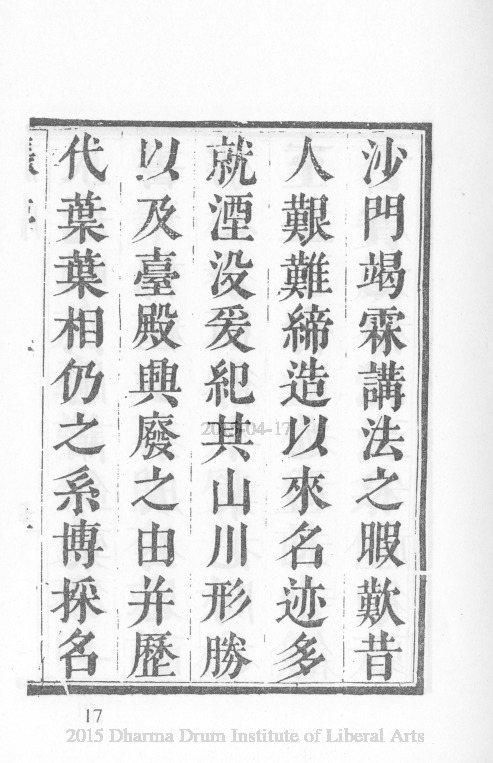 沙門竭霖講法之暇歎昔
人艱難締造以來名迹多
就湮没爰紀其山川形勝
以及臺殿興廢之由并歷
代葉葉相仍之系博採名
17
2015 Dharma Drum Institute of Liberal Arts